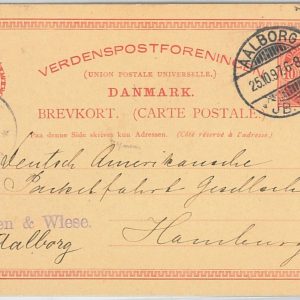 VERDENSPOSTFORENING
(UNION POSTALE UNIVERSELLE.)
DANMARK.
BREVKORT. (CARTE POSTALE.)
Paa denne Side skrives kun Adressen. (Côté réservé à l'adresse.)
AALBORG
25.10.97.6-8
JB.
Deutsch Amerikanische
Packetfahrt Gesellsch
en & Wiese.
Aalborg
Hamburg